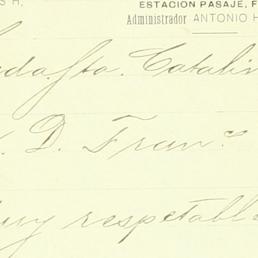 S H,
ESTACION PASAJE, F
Administrador ANTONIO H
da. Sta. Catalin
D. Franco
uy respetabl